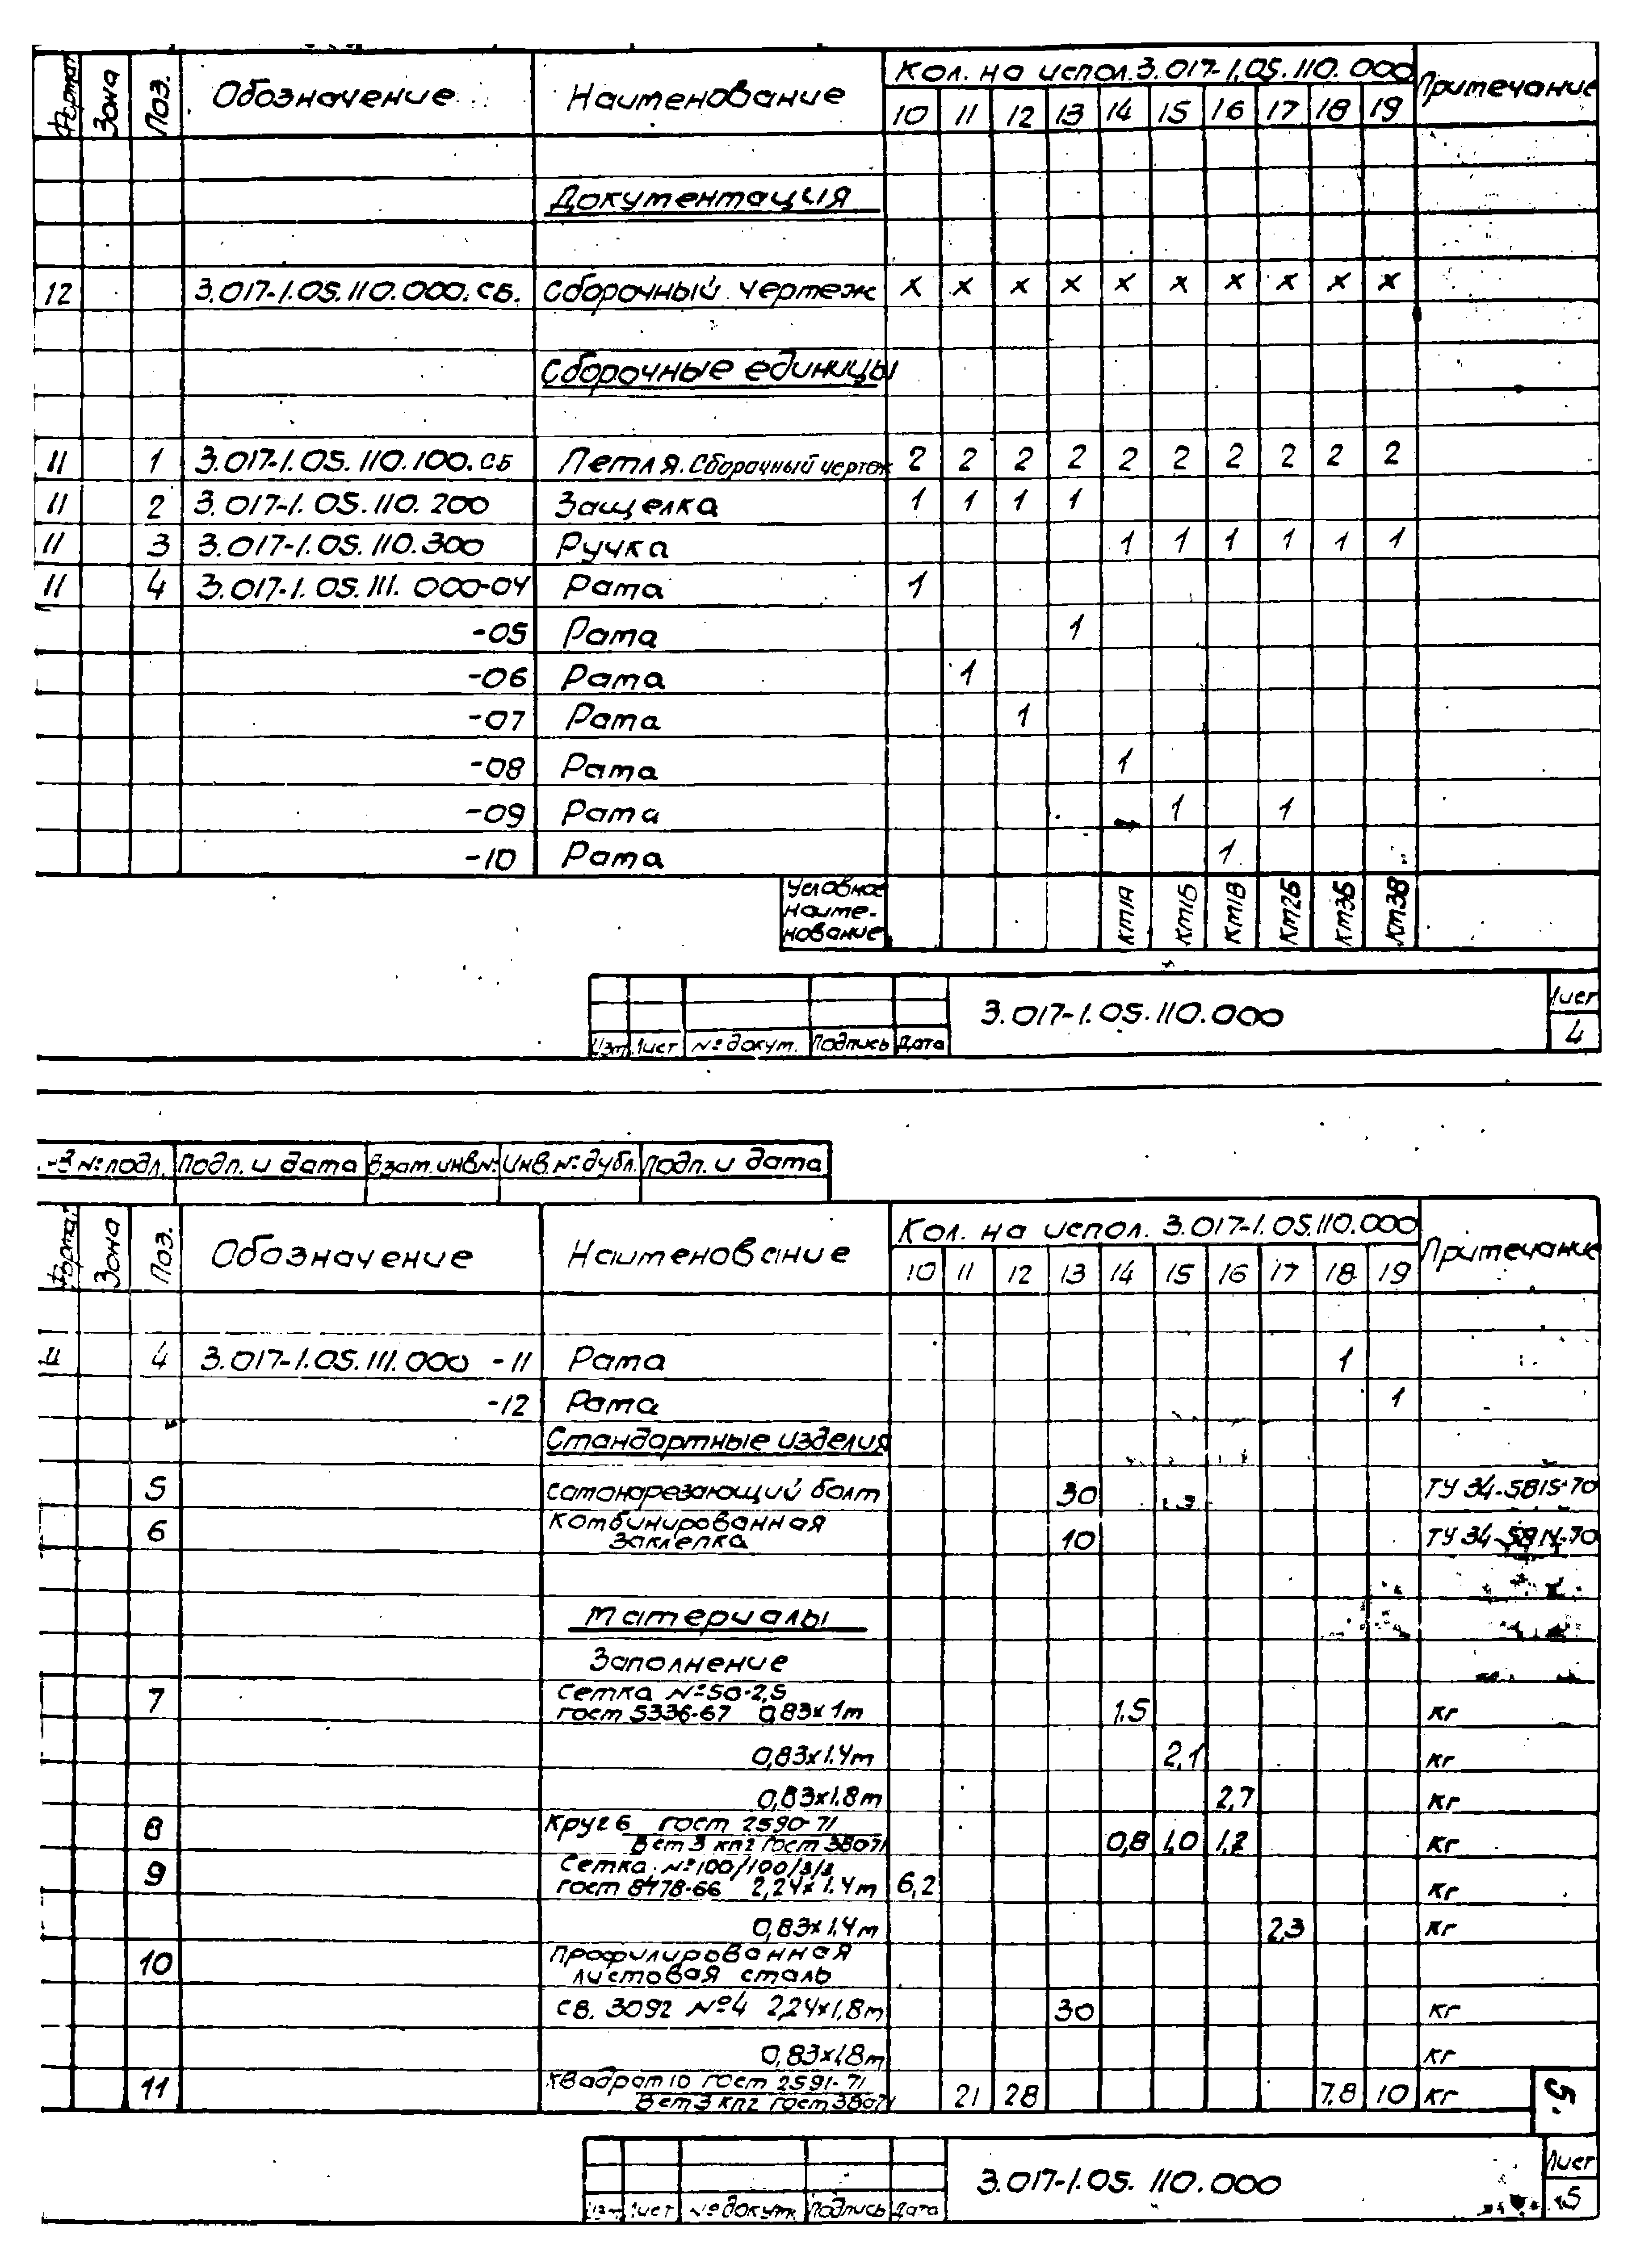 Формат Зона Поз. Обозначение Наименование Кол. на испол. 3.017-1.05.110.000 Примечание
10 11 12 13 14 15 16 17 18 19
Документация
12 3.017-1.05.110.000.СБ. Сборочный чертеж х х х х х х х х х х
Сборочные единицы
11 1 3.017-1.05.110.100.СБ Петля. Сборочный чертеж 2 2 2 2 2 2 2 2 2 2
11 2 3.017-1.05.110.200 Защелка 1 1 1 1
11 3 3.017-1.05.110.300 Ручка 1 1 1 1 1 1
11 4 3.017-1.05.111.000-04 Рама 1
-05 Рама 1
-06 Рама 1
-07 Рама 1
-08 Рама 1
-09 Рама 1 1
-10 Рама 1
Условное наиме-нование КМ1А КМ1Б КМ1В КМ2Б КМ3Б КМ3В
3.017-1.05.110.000 Лист
Изм Лист № докум. Подпись Дата 4
№ подл. Подп. и дата Взам. инв. № Инв. № дубл. Подп. и дата
Формат Зона Поз. Обозначение Наименование Кол. на испол. 3.017-1.05.110.000 Примечание
10 11 12 13 14 15 16 17 18 19
11 4 3.017-1.05.111.000 -11 Рама 1
-12 Рама 1
Стандартные изделия
5 Самонарезающий болт 30 ТУ 34-5815-70
6 Комбинированная
заклепка 10 ТУ 34-5814-70
Материалы
Заполнение
7 Сетка №50-2,5
гост 5336-67 0,83х1м 1.5 кг
0,83х1.4м 2,1 кг
0,83х1.8м 2,7 кг
8 Круг 6 гост 2590-71
В ст 3 кп2 гост 380-71 0,8 1,0 1,2 кг
9 Сетка №100/100/3/3
гост 8478-66 2,24х1.4м 6,2 кг
0,83х1.4м 2,3 кг
10 Профилированная
листовая сталь
св. 3092 №4 2,24х1,8м 30 кг
0,83х1,8м кг
11 Квадрат 10 гост 2591-71
В ст 3 кп2 гост 380-71 21 28 7,8 10 кг
5.
3.017-1.05.110.000 Лист
Изм Лист № докум. Подпись Дата 5